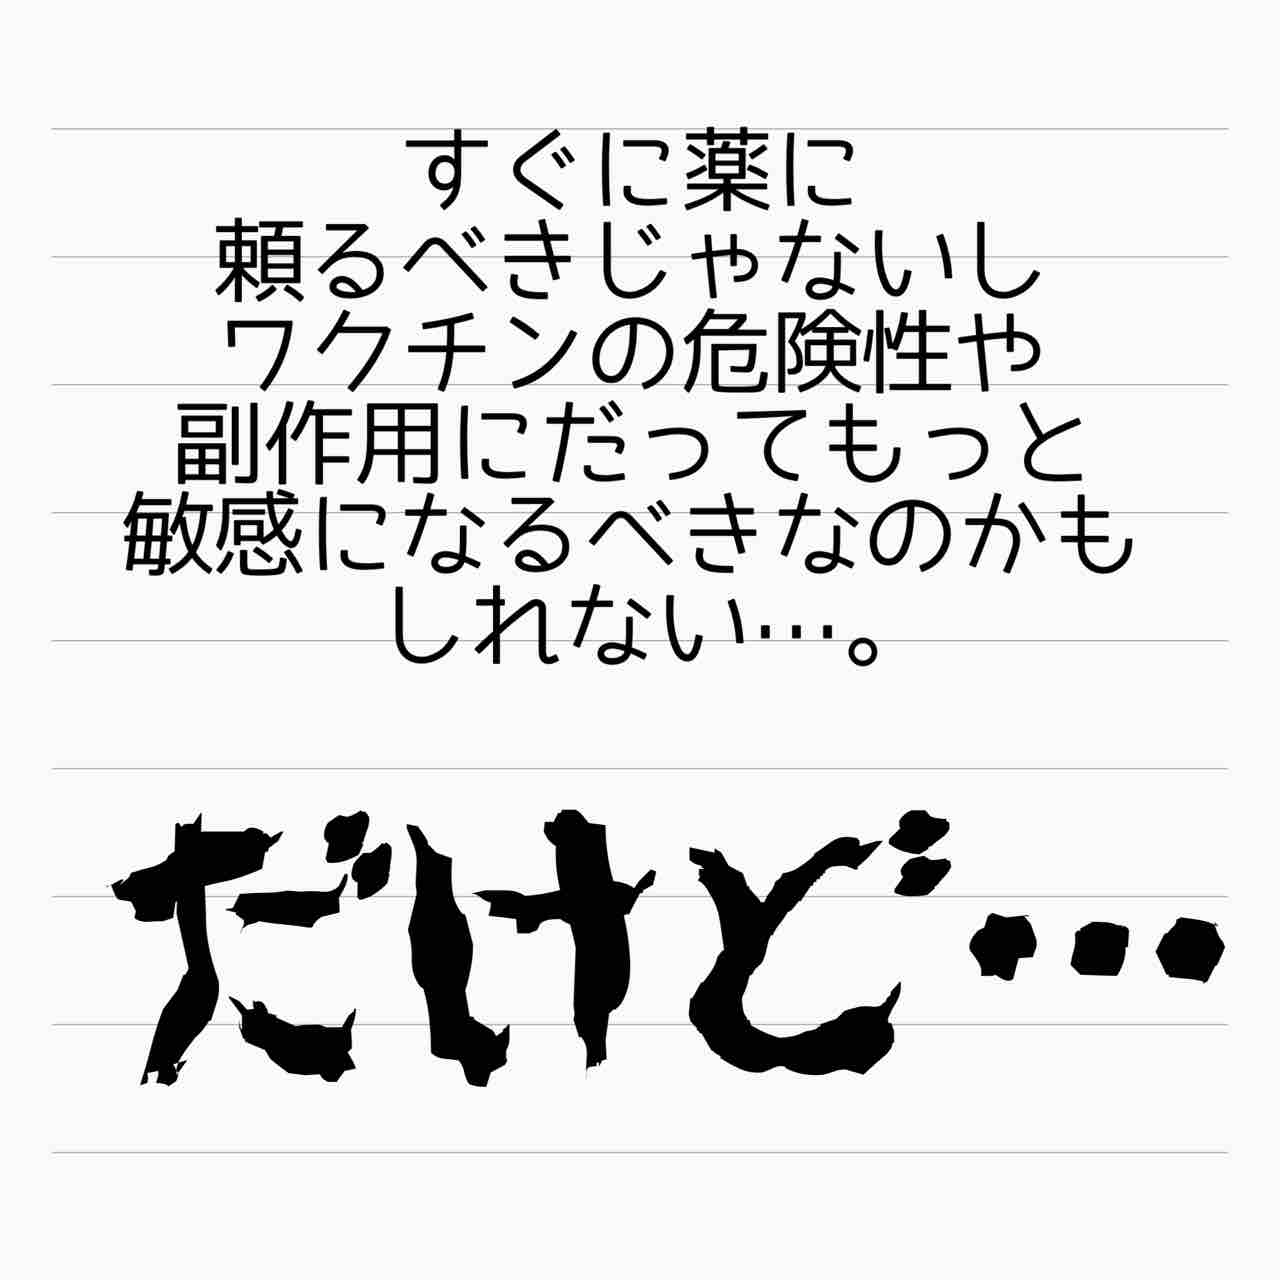 すぐに薬に
頼るべきじゃないし
ワクチンの危険性や
副作用にだってもっと
敏感になるべきなのかも
しれない…。
だけど…